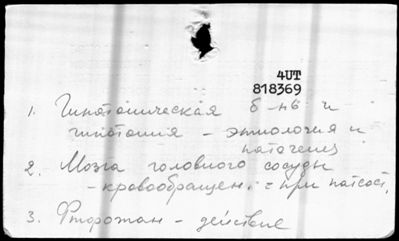 4UT
818369
1. Гипотоническая б-нь и
гипотония - этиология и
патогенез
2. Мозга головного сосуды
- кровообращен. - при патсост.
3. Фторотан - действие